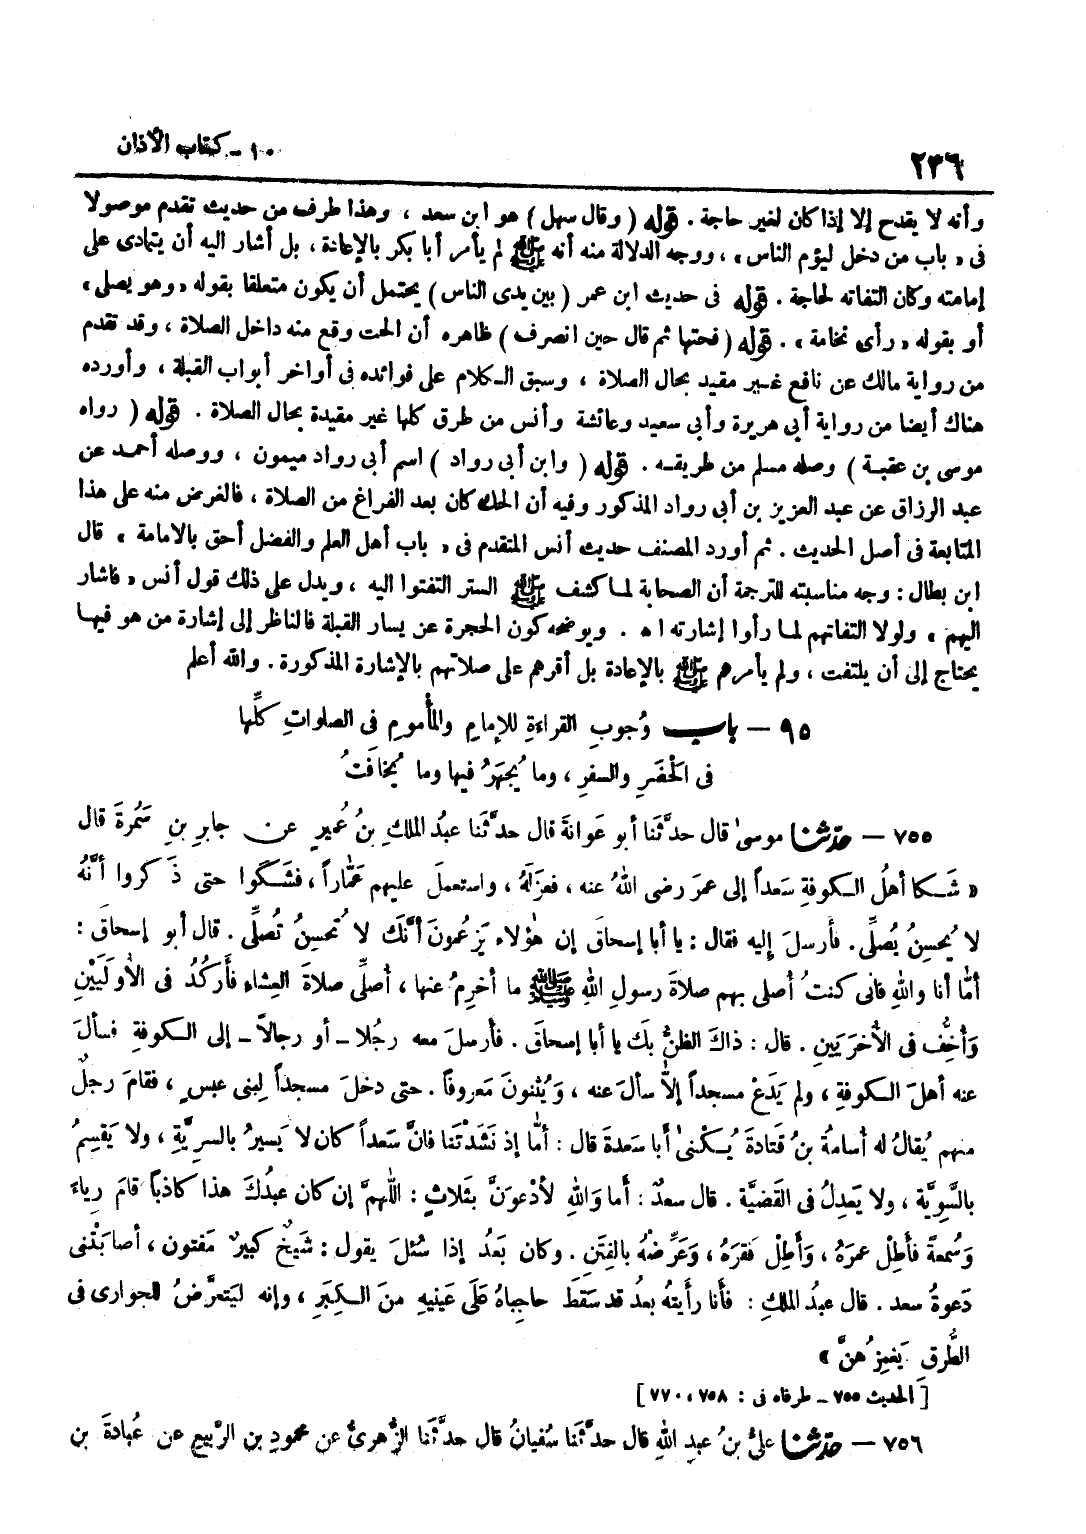 ٢٣٦
١٠ - كتاب الأذان
وأنه لا يقدح إلا إذا كان لغير حاجة . قوله ( وقال سهل ) هو ابن سعد ، وهذا طرف من حديث تقدم موصولا
فى « باب من دخل ليؤم الناس » ، ووجه الدلالة منه أنه ﷺ لم يأمر أبا بكر بالإعادة ، بل أشار اليه أن يتمادى على
إمامته وكان التفاته لحاجة . قوله فى حديث ابن عمر ( بين يدى الناس ) يحتمل أن يكون متعلقا بقوله « وهو يصلى »
أو بقوله « رأى نخامة » . قوله ( فحتها ثم قال حين انصرف ) ظاهره أن الحت وقع منه داخل الصلاة ، وقد تقدم
من رواية مالك عن نافع غير مقيد بحال الصلاة ، وسبق الكلام على فوائده فى أواخر أبواب القبلة ، وأورده
هناك أيضا من رواية أبى هريرة وأبى سعيد وعائشة وأنس من طرق كلها غير مقيدة بحال الصلاة . قوله ( رواه
موسى بن عقبة ) وصله مسلم من طريقه . قوله ( وابن أبى رواد ) اسم أبى رواد ميمون ، ووصله أحمد عن
عبد الرزاق عن عبد العزيز بن أبى رواد المذكور وفيه أن الحك كان بعد الفراغ من الصلاة ، فالغرض منه على هذا
المتابعة فى أصل الحديث . ثم أورد المصنف حديث أنس المتقدم فى « باب أهل العلم والفضل أحق بالامامة » قال
ابن بطال : وجه مناسبته للترجمة أن الصحابة لما كشف ﷺ الستر التفتوا اليه ، ويدل على ذلك قول أنس « فأشار
اليهم » ولولا التفاتهم لما رأوا إشارته ا ه . ويوضحه كون الحجرة عن يسار القبلة فالناظر إلى إشارة من هو فيها
يحتاج إلى أن يلتفت ، ولم يأمرهم ﷺ بالإعادة بل أقرهم على صلاتهم بالإشارة المذكورة . والله أعلم
٩٥ - باب وُجوبِ القراءةِ للإمامِ والمأْمومِ فى الصلواتِ كلِّها
فى الحَضَرِ والسفرِ ، وما يُجهَرُ فيها وما يُخافَتُ
٧٥٥ - حدّثنا موسىٰ قال حدَّثَنا أبو عَوانةَ قال حدَّثَنا عبدُ الملكِ بنُ عُميرٍ عن جابرِ بنِ سَمُرةَ قال
« شَكا أهلُ الكوفةِ سَعداً إلى عمرَ رضى اللهُ عنه ، فعزَلَهُ ، واستعملَ عليهم عَمّاراً ، فشَكَوا حتى ذَكروا أنَّهُ
لا يُحسِنُ يُصلِّى . فأَرسلَ إليه فقال : يا أبا إسحاقَ إن هٰؤلاء يَزعُمونَ أنَّكَ لا تُحسِنُ تُصلِّى . قال أبو إسحاقَ :
أمّا أنا واللهِ فانى كنتُ أُصلى بهم صلاةَ رسولِ اللهِ ﷺ ما أخرِمُ عنها ، أُصلِّى صلاةَ العِشاءِ فأَركُدُ فى الأُولَيَيْنِ
وَأُخِفُّ فى الأُخرَيَينِ . قال : ذاكَ الظنُّ بكَ يا أبا إسحاقَ . فأَرسلَ معه رجُلا - أو رجالاً - إلى الكوفةِ فسألَ
عنه أهلَ الكوفةِ ، ولم يَدَعْ مسجداً إلاّ سألَ عنه ، وَيُثنونَ مَعروفاً . حتى دخلَ مسجداً لِبنى عبسٍ ، فقامَ رجلٌ
منهم يُقالُ له أُسامةُ بنُ قَتادةَ يُكْنىٰ أبا سَعدةَ قال : أمّا إذ نَشَدْتَنا فانَّ سَعداً كان لا يَسيرُ بالسرِيَّةِ ، ولا يَقسِمُ
بالسَّوِيَّة ، ولا يَعدِلُ فى القَضيَّة . قال سعدٌ : أما وَاللهِ لأَدْعوَنَّ بثَلاثٍ : اللّهمَّ إن كان عبدُكَ هذا كاذباً قامَ رِياءَ
وَسُمعةً فأَطِلْ عمرَهُ ، وَأَطِلْ فَقرَهُ ، وَعَرِّضْهُ بالفِتَن . وكان بَعدُ إذا سُئلَ يقول : شَيخٌ كبيرٌ مَفتون ، أصابَتْنى
دَعوةُ سعد . قال عبدُ الملكِ : فأَنا رأَيتُهُ بعدُ قد سَقطَ حاجِباهُ عَلَى عَينيهِ منَ الكِبَرِ ، وإنه لَيَتعرَّضُ للجوارى فى
الطُّرق يَغمِزُهنَّ »
[ الحديث ٧٥٥ - طرفاه فى : ٧٥٨ ، ٧٧٠ ]
٧٥٦ - حدّثنا علىُّ بنُ عبدِ اللهِ قال حدَّثَنا سُفيانُ قال حدَّثَنا الزُّهرىُّ عن محمودِ بنِ الرَّبيعِ عن عُبادةَ بنِ